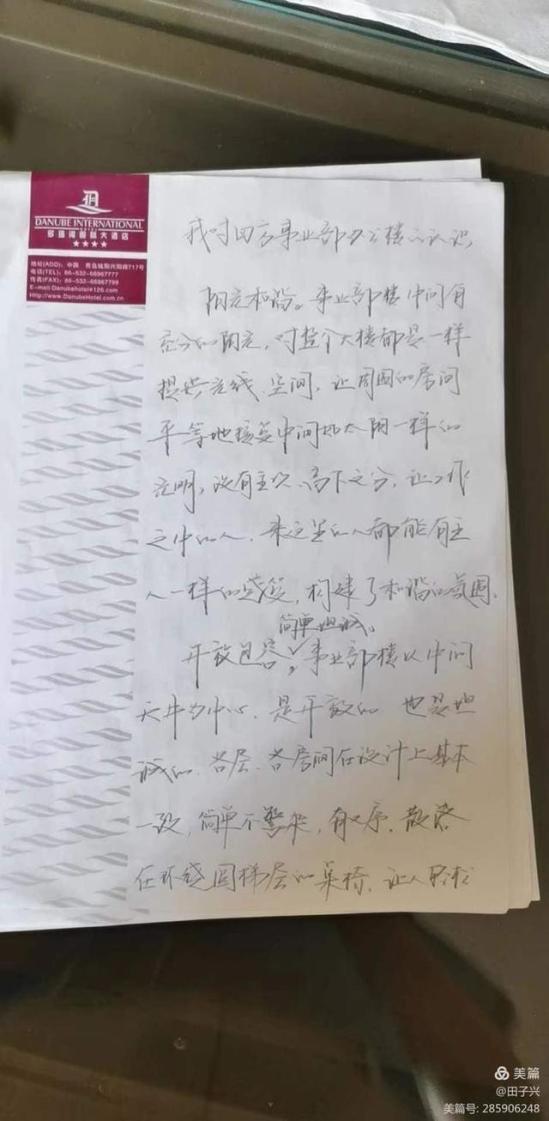 DANUBE INTERNATIONAL
HOTEL
多瑙河国际大酒店
★★★★
地址(ADD): 中国 青岛城阳兴阳路717号
电话(TEL): 86-532-66967777
传真(FAX): 86-532-66967799
E-mail:Danubehotel@126.com
Http://www.DanubeHotel.com.cn
我对四方事业部办公楼的认识
阳光和谐。事业部楼中间有
充分的阳光,对整个大楼都是一样
提供光线、空间,让周围的房间
平等地接受中间如太阳一样的
光明,没有主次、高下之分,让工作
之中的人、来这里的人都能有主
人一样的感觉,构建了和谐的氛围。
简单坦诚。
开放包容,事业部楼以中间
天井为中心,是开放的 也是坦
诚的,各层、各房间在设计上基本
一致,简单不繁杂,有次序,散落
在环绕园梯层的桌椅,让人
美篇
@田子兴
美篇号: 285906248